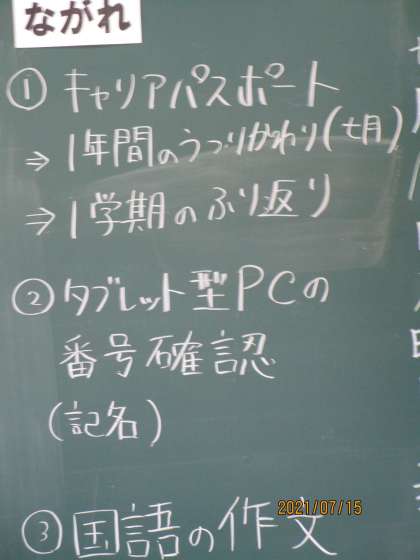 ながれ
① キャリアパスポート
⇒ 1年間のうつりかわり(七月)
⇒ 1学期のふり返り
② タブレット型PCの
番号確認
(記名)
2021/07/15
③ 国語の作文